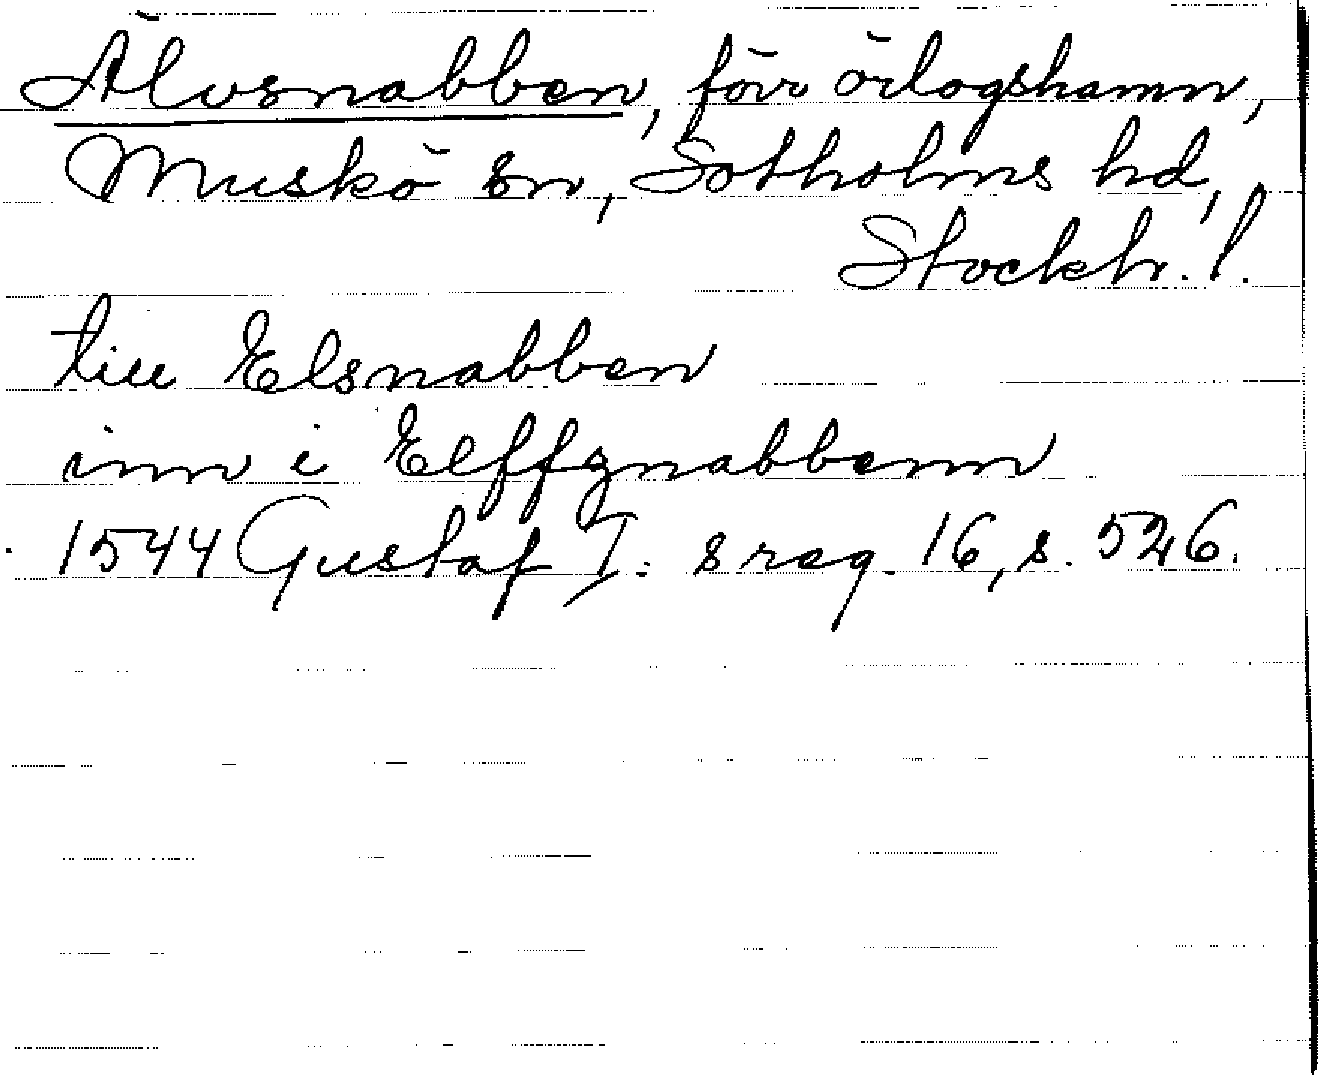 Älvsnabben, förr örlogshamn,
Muskö sn, Sotholms hd,
Stockh. l.
till Elsnabben
inn i Elffznabbenn
1544 Gustaf I:s reg. 16, s. 526.